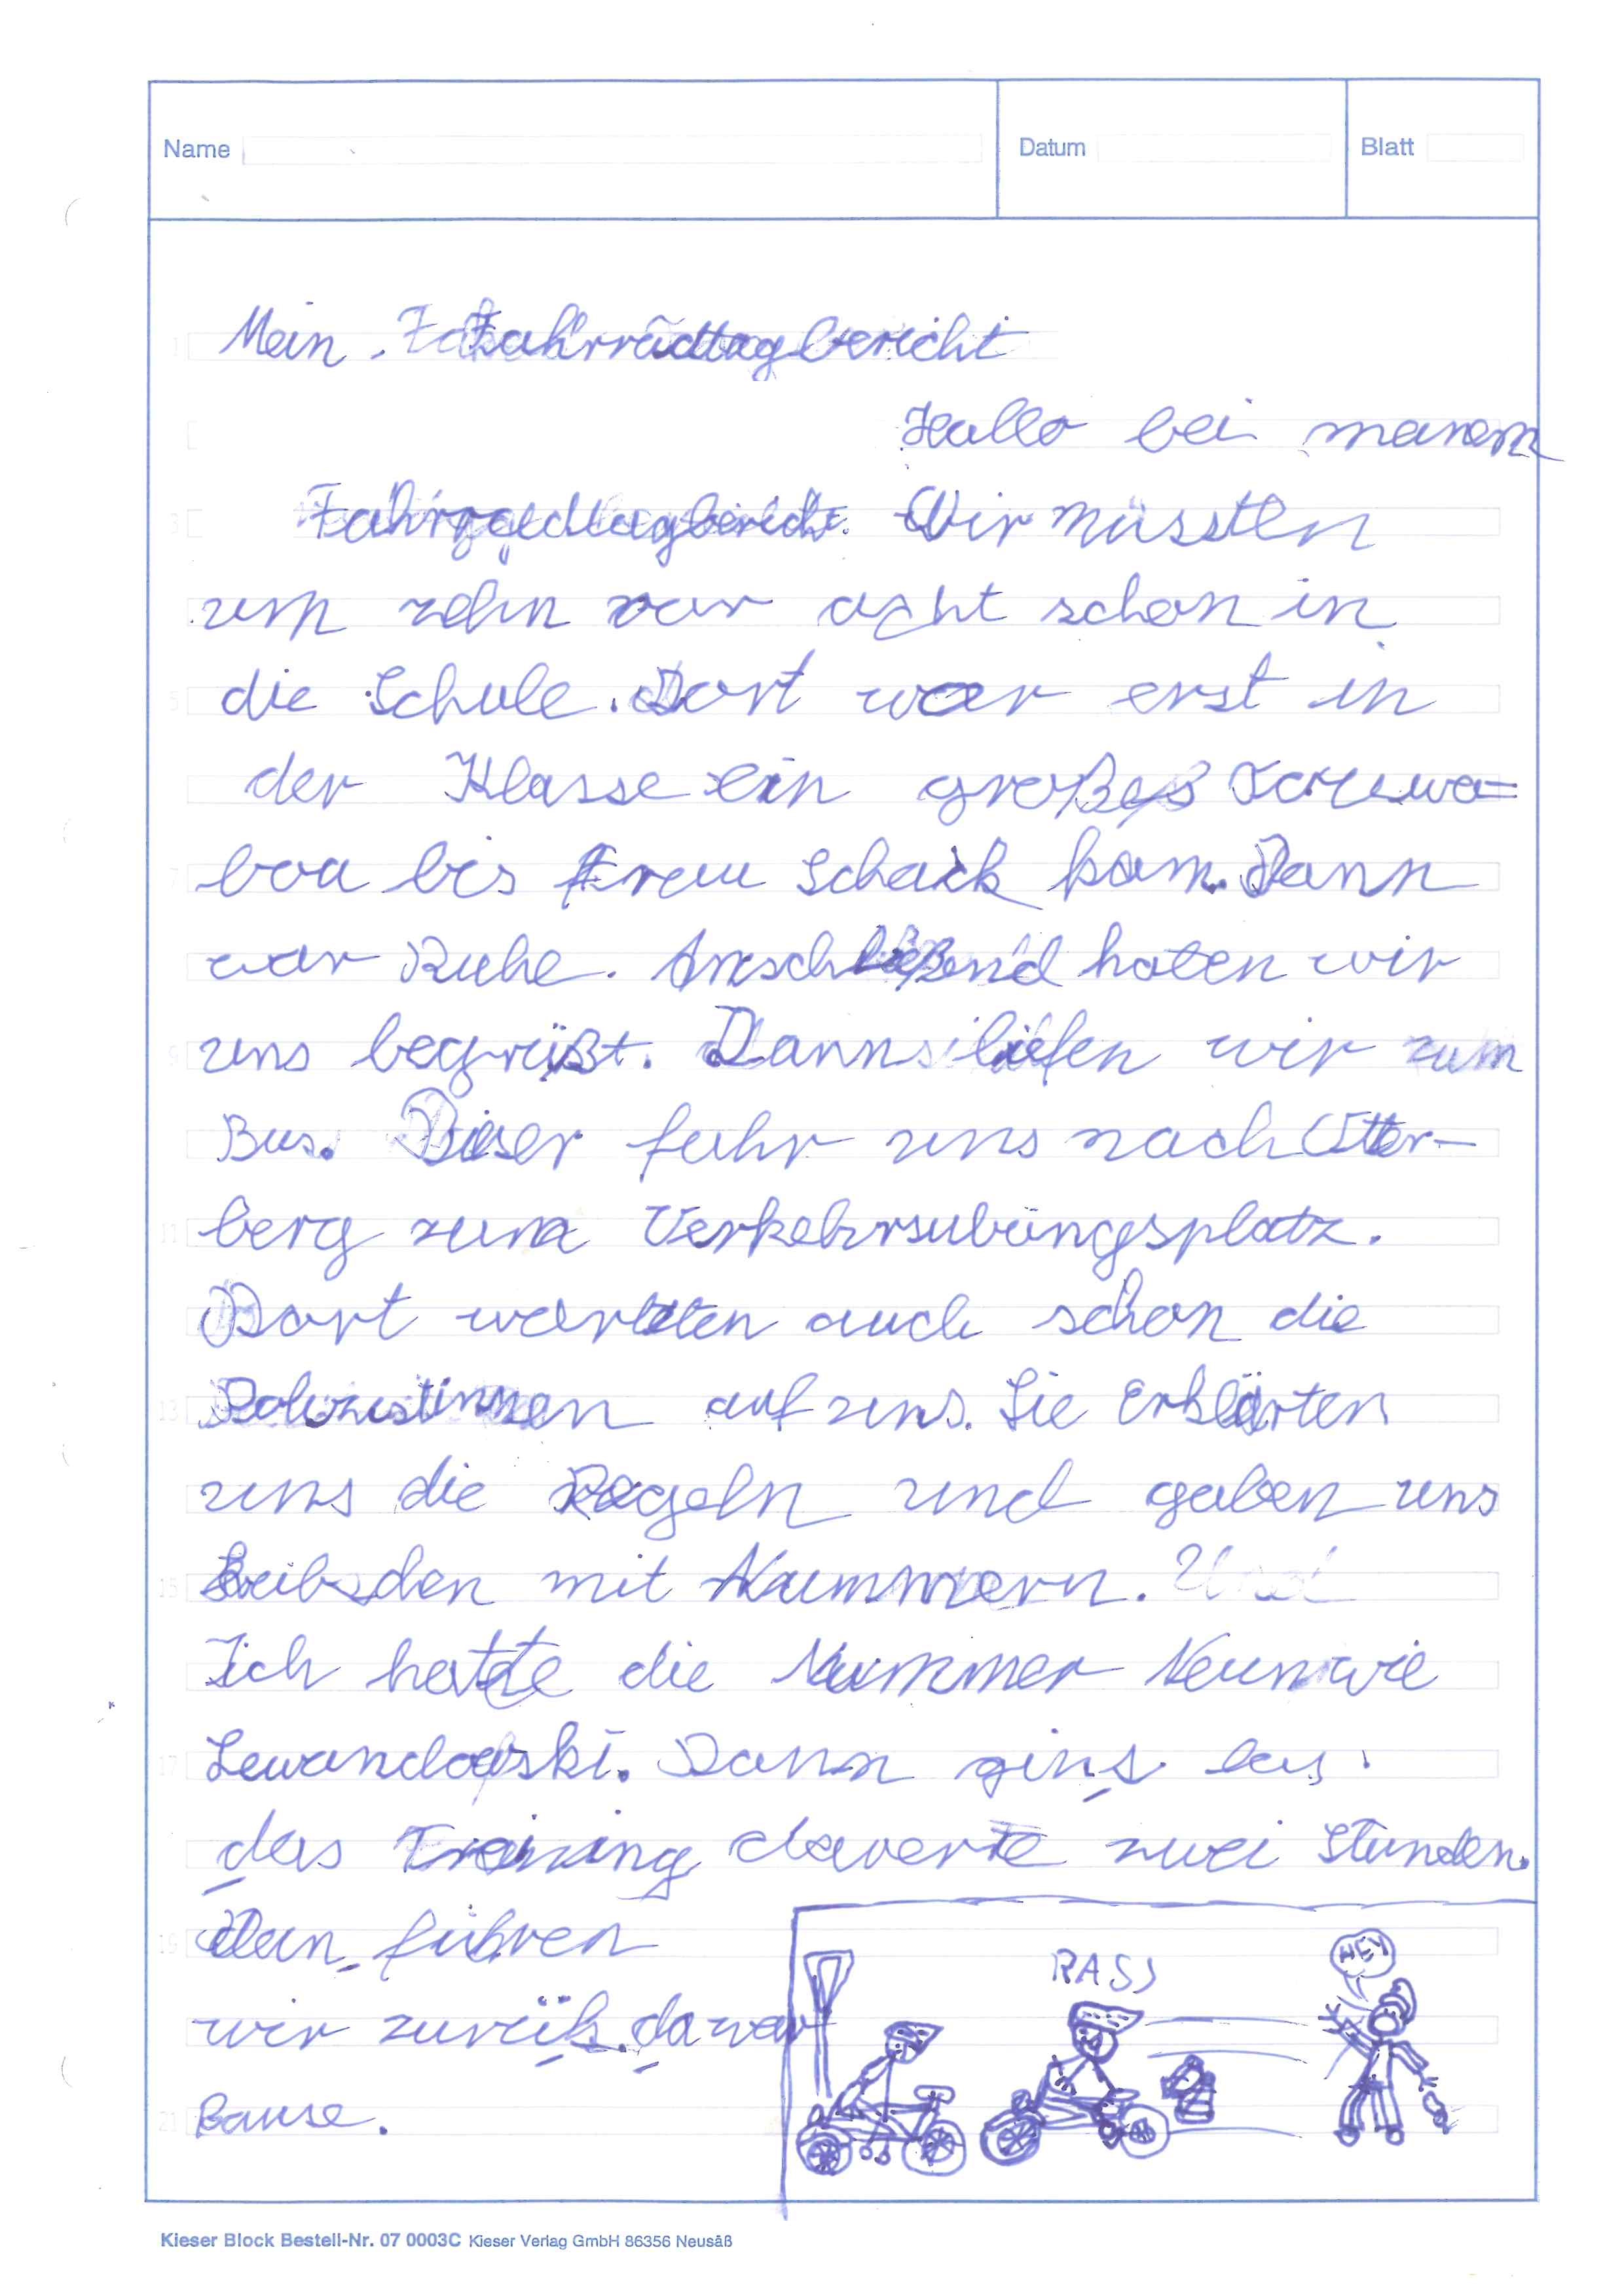 Name
Datum
Blatt
Mein Fahrradtagbericht
Hallo bei meinem
Fahrradtagbericht. Wir müssten
um zehn vor acht schon in
die Schule. Dort war erst in
der Klasse ein großes
bis Frau Schack kam. Dann
war Ruhe. Anschließend haten wir
uns begrüßt. Dann liefen wir zum
Bus. Dieser fuhr uns nach Otter-
berg zum Verkehrsubüngsplatz.
Dort warteten auch schon die
Polizistinnen auf uns. Sie Erklärten
uns die Regeln und gaben uns
mit Nummern. Und
Ich hatte die Nummer Neun wie
Lewandowski. Dann gins los.
das Training dauerte zwei Stunden.
führen
wir zurük. da war
Bause.
RASS
HEY
Kieser Block Bestell-Nr. 07 0003C Kieser Verlag GmbH 86356 Neusäß